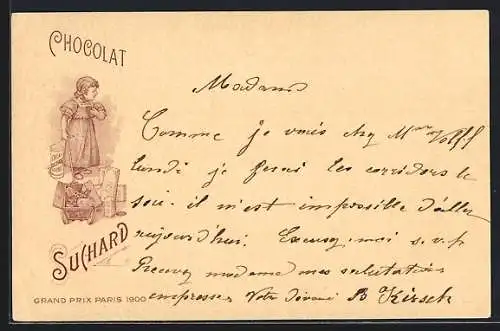 CHOCOLAT
Madame
Comme je vais chez Mme Wolff
lundi je ferai les corridors le
soir. il m'est impossible d'aller
aujourd'hui. Excusez-moi s.v.p
SUCHARD
Recevez madame mes salutations
GRAND PRIX PARIS 1900
empressées Votre dévoué B Kirsch